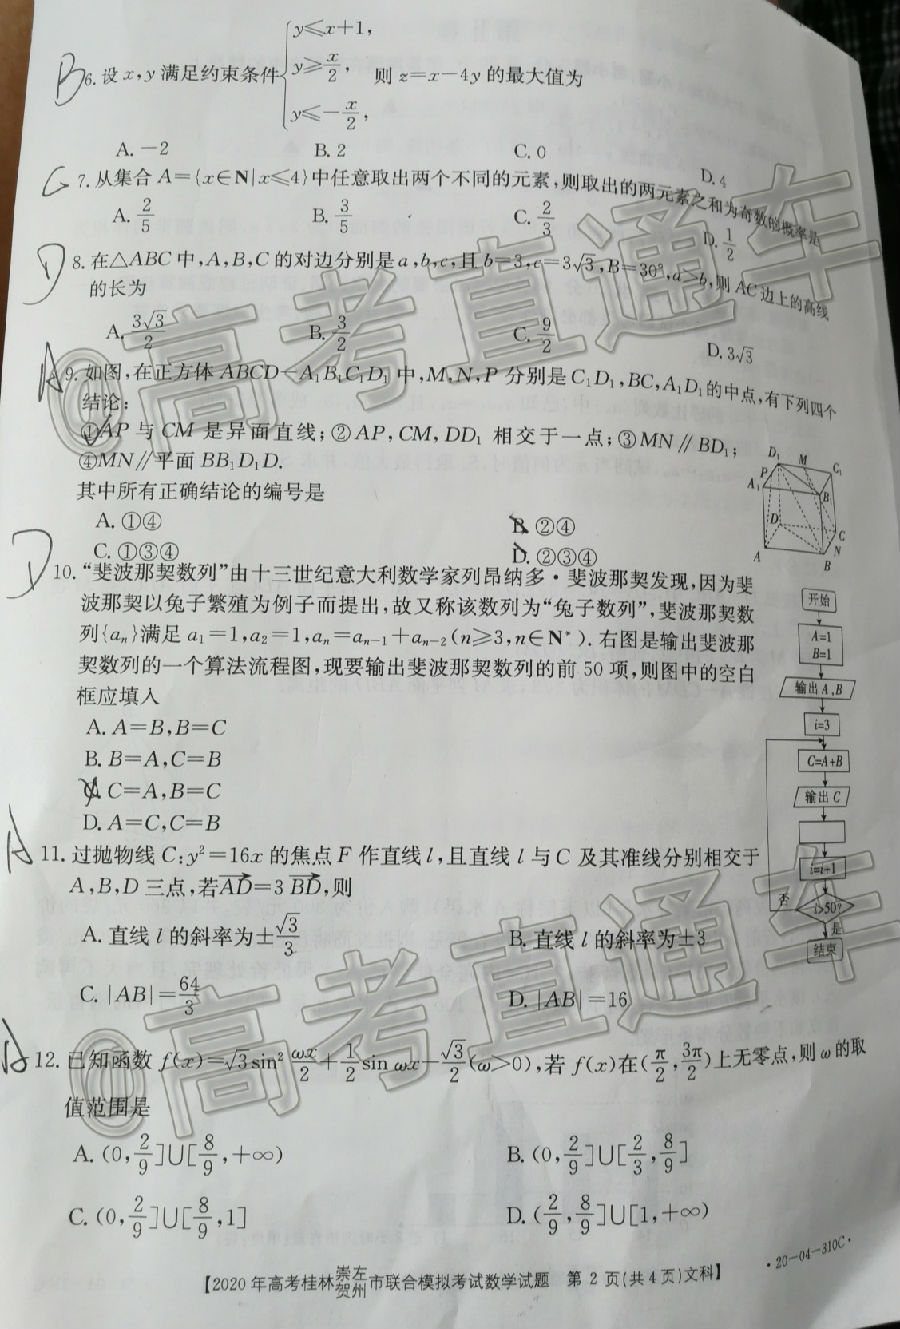 y≤x+1,
B 6.设x,y满足约束条件 y≥x/2, 则z=x-4y的最大值为
y≤-x/2,
A.-2 B.2 C.0 D.4
C 7.从集合A={x∈N|x≤4}中任意取出两个不同的元素,则取出的两元素之和为奇数的概率是
A.2/5 B.3/5 C.2/3 D.1/2
D 8.在△ABC中,A,B,C的对边分别是a,b,c,且b=3,c=3√3,B=30°,a>b,则AC边上的高线
的长为
A.3√3/2 B.3/2 C.9/2 D.3√3
A 9.如图,在正方体ABCD-A₁B₁C₁D₁中,M,N,P分别是C₁D₁,BC,A₁D₁的中点,有下列四个
结论:
①AP与CM是异面直线;②AP,CM,DD₁相交于一点;③MN∥BD₁;
④MN∥平面BB₁D₁D.
其中所有正确结论的编号是
A.①④ B.②④
C.①③④ D.②③④
D₁ M C₁
P
A₁ B
D C
A N
B
D 10.“斐波那契数列”由十三世纪意大利数学家列昂纳多·斐波那契发现,因为斐
波那契以兔子繁殖为例子而提出,故又称该数列为“兔子数列”,斐波那契数
列{aₙ}满足a₁=1,a₂=1,aₙ=aₙ₋₁+aₙ₋₂(n≥3,n∈N*).右图是输出斐波那
契数列的一个算法流程图,现要输出斐波那契数列的前50项,则图中的空白
框应填入
A.A=B,B=C
B.B=A,C=B
C.C=A,B=C
D.A=C,C=B
开始
A=1
B=1
输出A,B
i=3
C=A+B
输出C
i=i+1
否 i>50?
是
结束
A 11.过抛物线C:y²=16x的焦点F作直线l,且直线l与C及其准线分别相交于
A,B,D三点,若AD=3BD,则
A.直线l的斜率为±√3/3 B.直线l的斜率为±3
C.|AB|=64/3 D.|AB|=16
A 12.已知函数f(x)=√3sin²ωx/2+1/2sinωx-√3/2(ω>0),若f(x)在(π/2,3π/2)上无零点,则ω的取
值范围是
A.(0,2/9]∪[8/9,+∞) B.(0,2/9]∪[2/3,8/9]
C.(0,2/9]∪[8/9,1] D.(2/9,8/9]∪[1,+∞)
【2020年高考桂林崇左贺州市联合模拟考试数学试题 第2页(共4页)文科】
·20-04-310C·
@高考直通车
@高考直通车